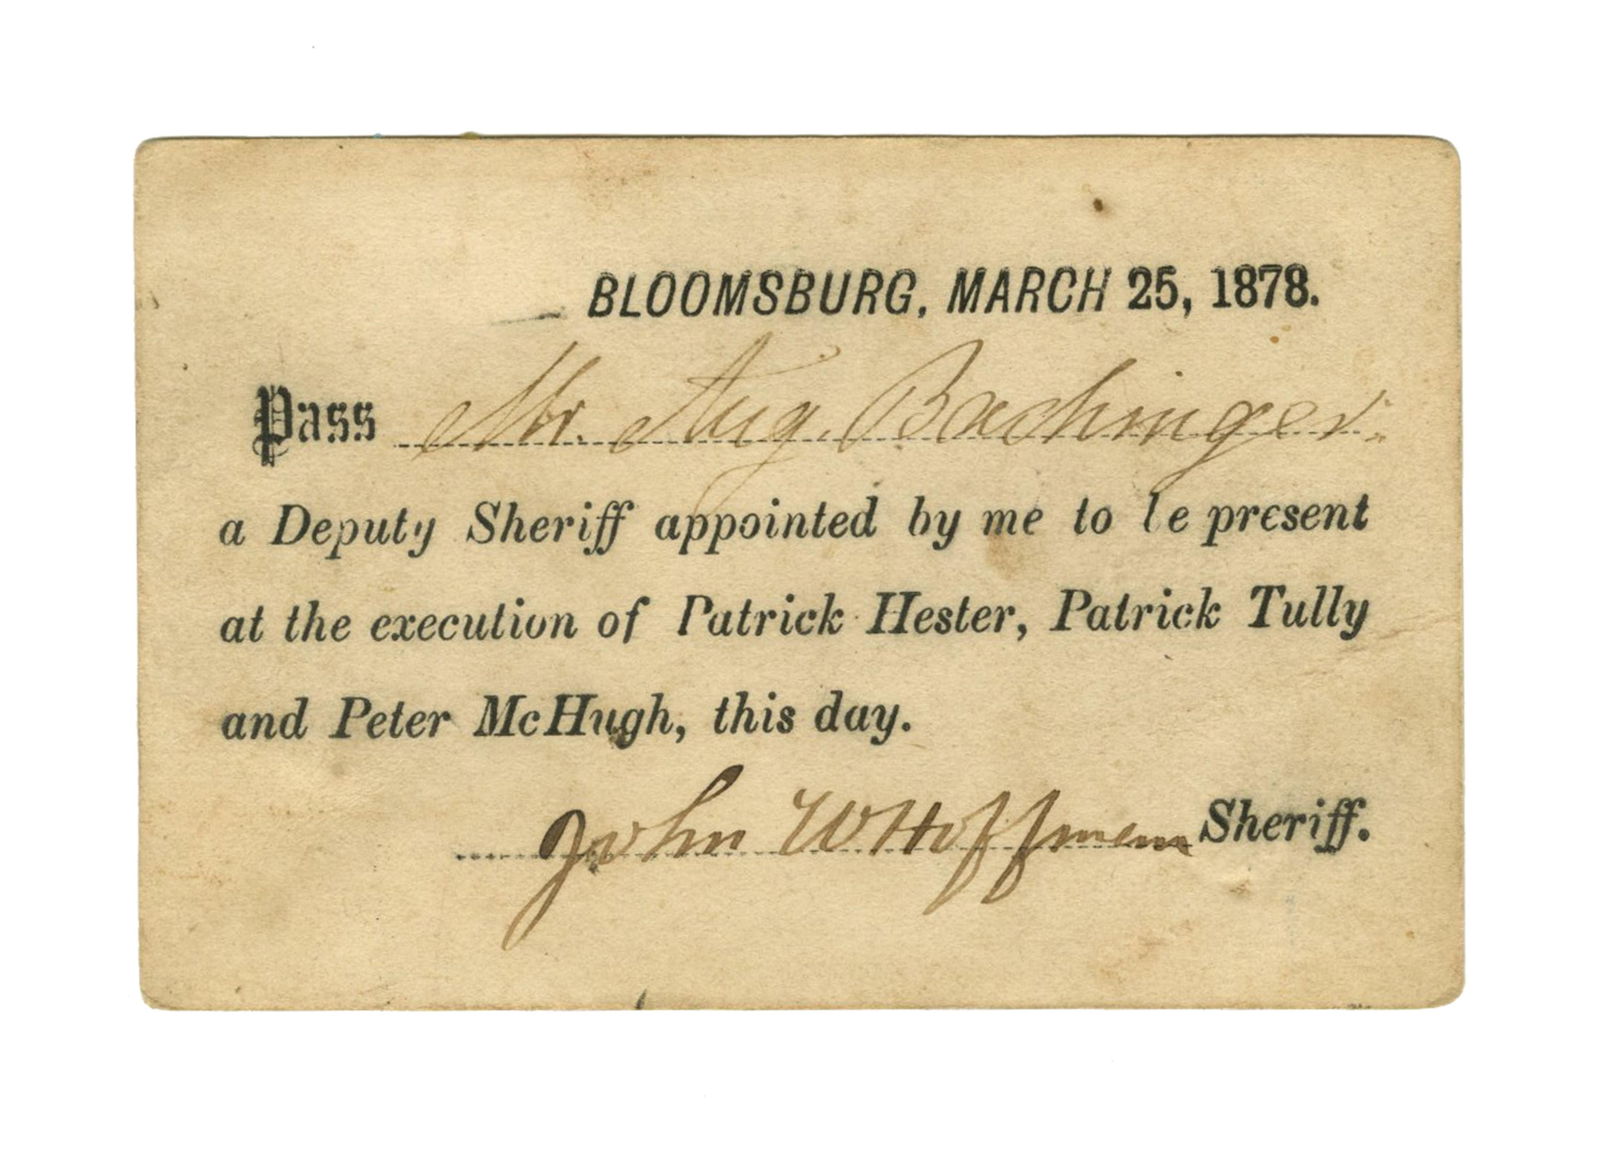 BLOOMSBURG, MARCH 25, 1878.
Pass Mr. Aug. Bachinger.
a Deputy Sheriff appointed by me to be present
at the execution of Patrick Hester, Patrick Tully
and Peter McHugh, this day.
John W Hoffman Sheriff.